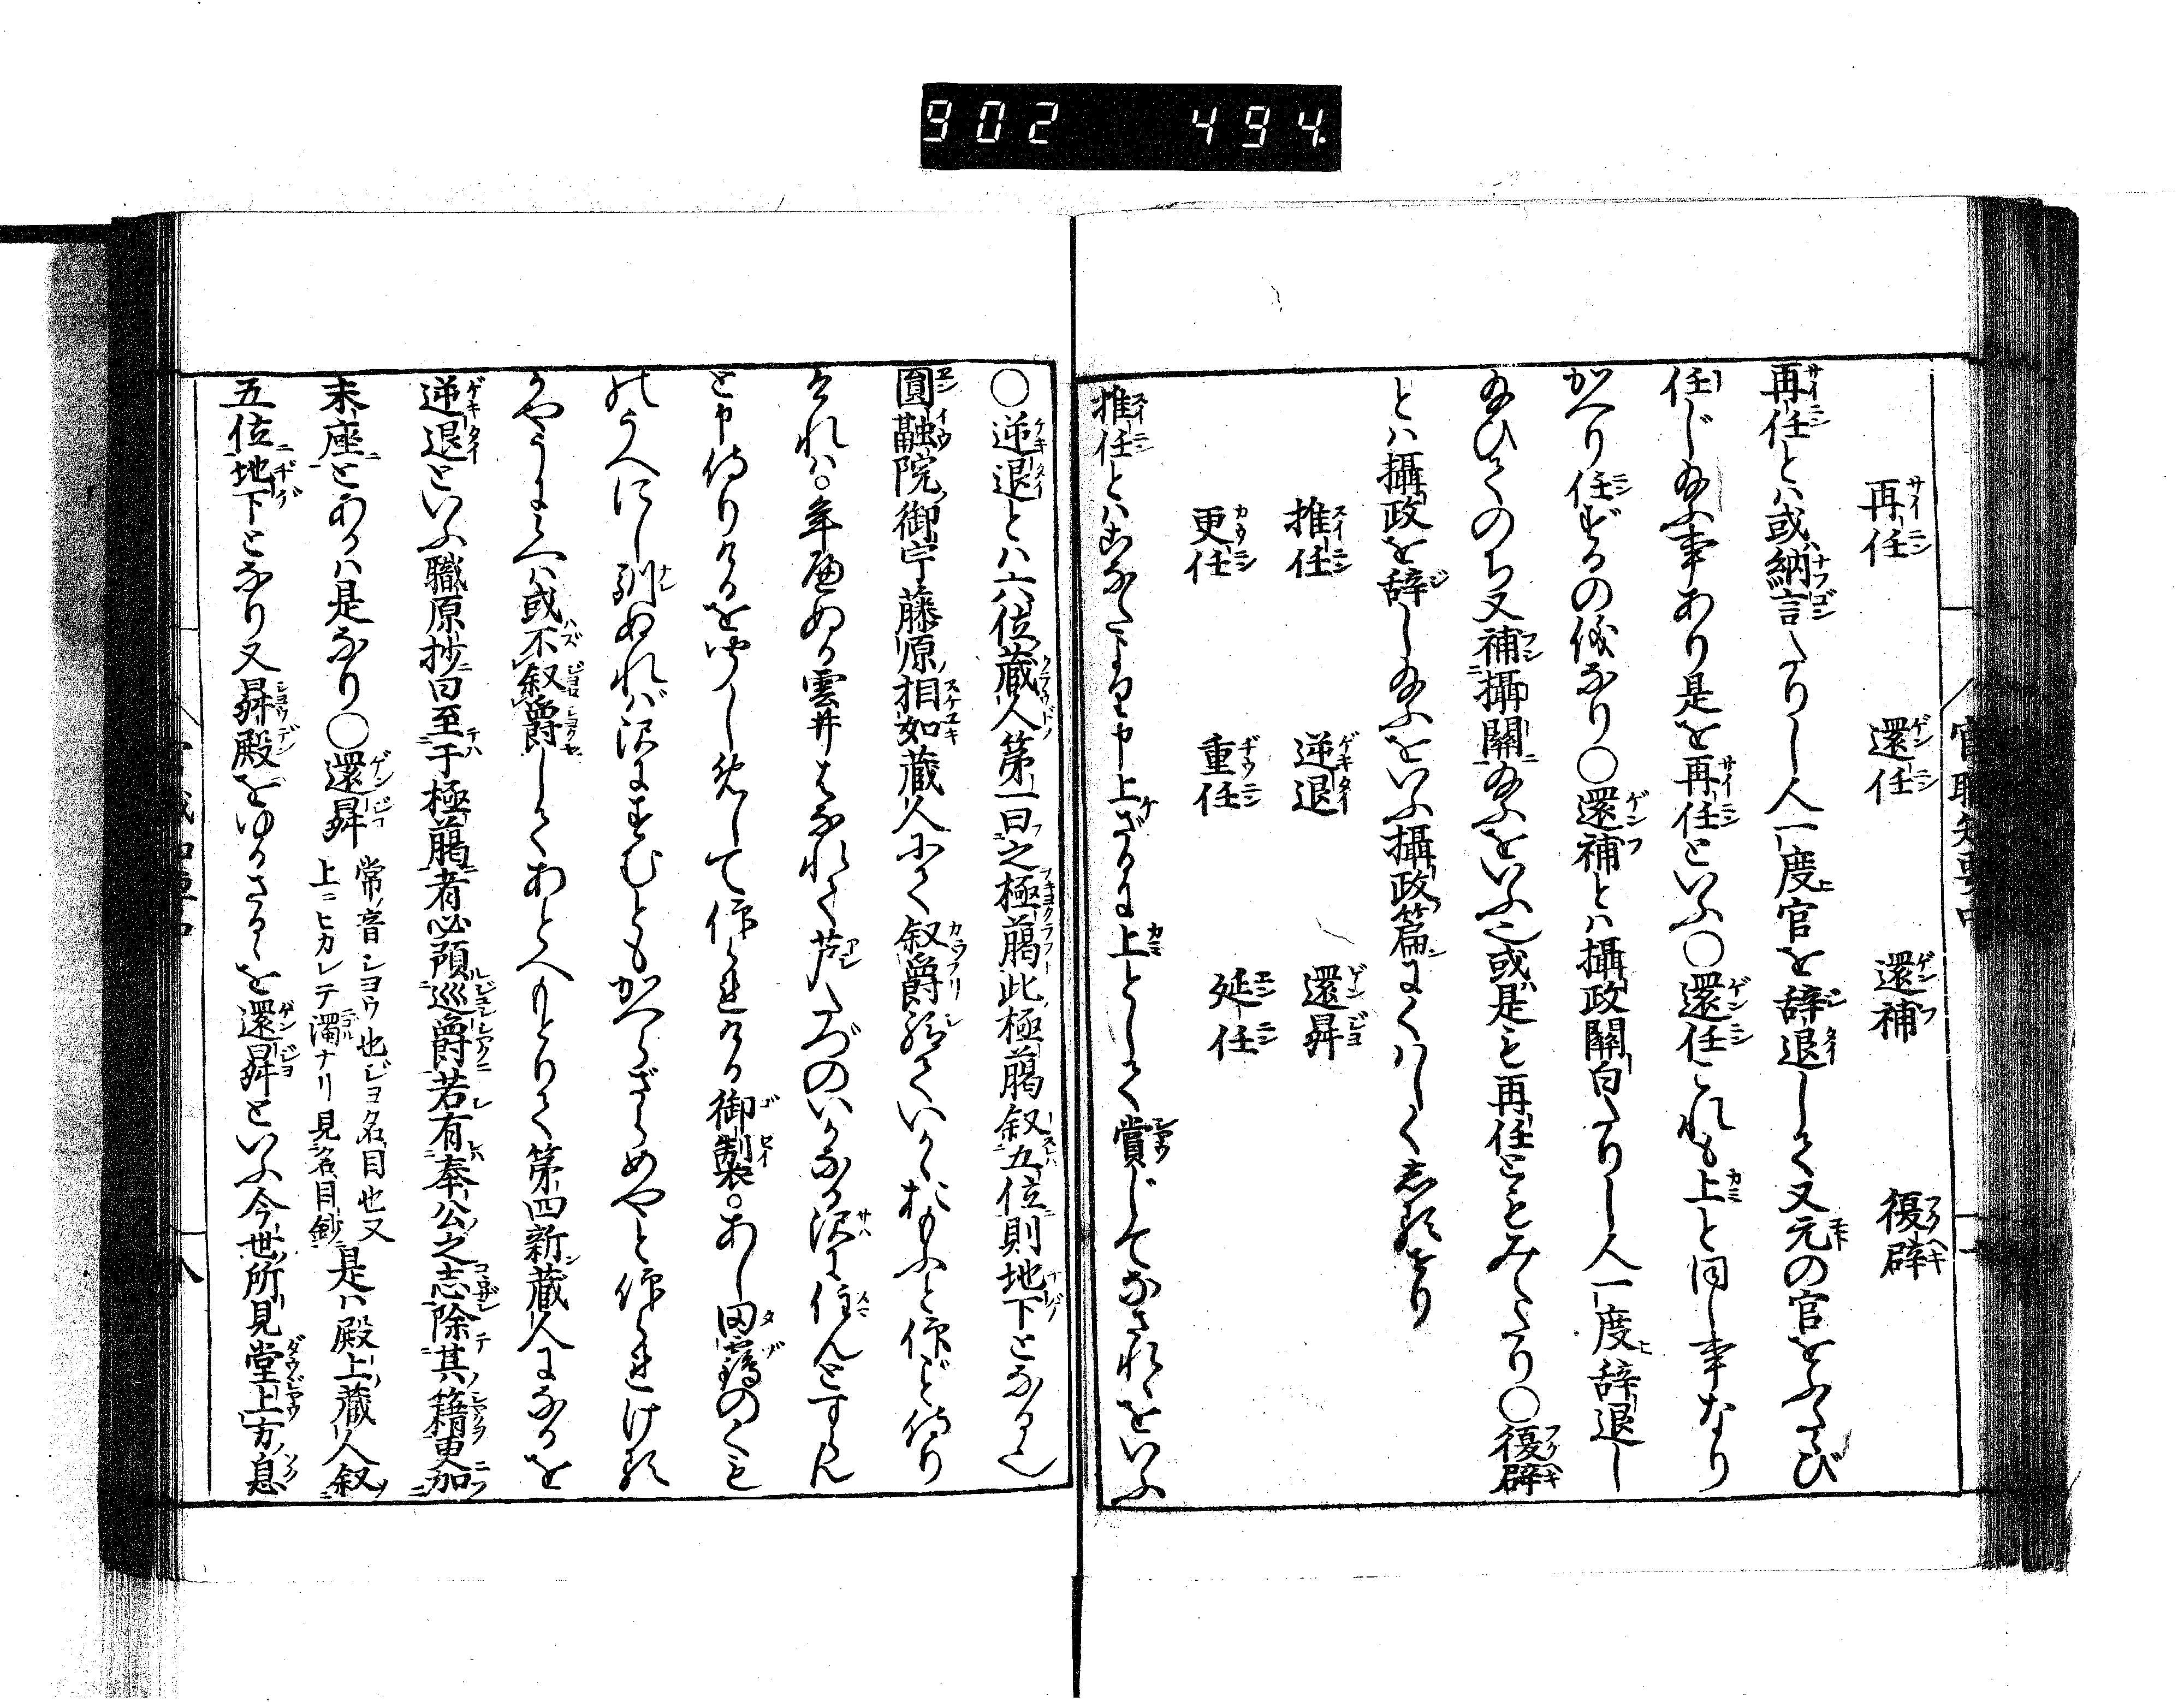 902 494
官職知要中
再任 還任 還補 復辟
推任 逆退 還昇
更任 重任 延任
再任とハ或納言たりし人一度官を辞退して又元の官をふたゝび
任じ給ふ事あり是を再任といふ〇還任これも上と同し事なり
かへり任ずるの儀なり〇還補とハ攝政關白たりし人一度辞退し
給ひてのち又補攝關給ふをいふ也或是も再任ともみへたり〇復辟
とハ攝政を辞し給ふをいふ攝政篇にくハしくしるせり
推任とハこなたより申上ざるに上として賞じてなされをいふ
〇逆退とハ六位蔵人第一曰之極﨟此極﨟叙五位則地下となる也
圓融院御宇藤原相如蔵人にて叙爵給ていかゝおもふと仰ど侍り
けれハ。年へぬる雲井はなれて芦たづのいかなる沢に住んとすらん
と申侍りけるを聞しめして仰られける御製。あし田鶴のくも
のうへにし馴ぬれば沢にすむともかへらざらめやと仰られける
かやうに候へハ或不叙爵してあとへもとりて第四新蔵人になるを
逆退といふ職原抄曰至于極﨟者必預巡爵若有奉公之志除其籍更加
末座とあるハ是なり〇還昇 常ノ音シヨウ也ジヨ名目也又
上ニヒカレテ濁ナリ見名目鈔 是ハ殿上蔵人叙
五位地下となり又昇殿をゆるさるゝを還昇といふ今世所見堂上方息
八